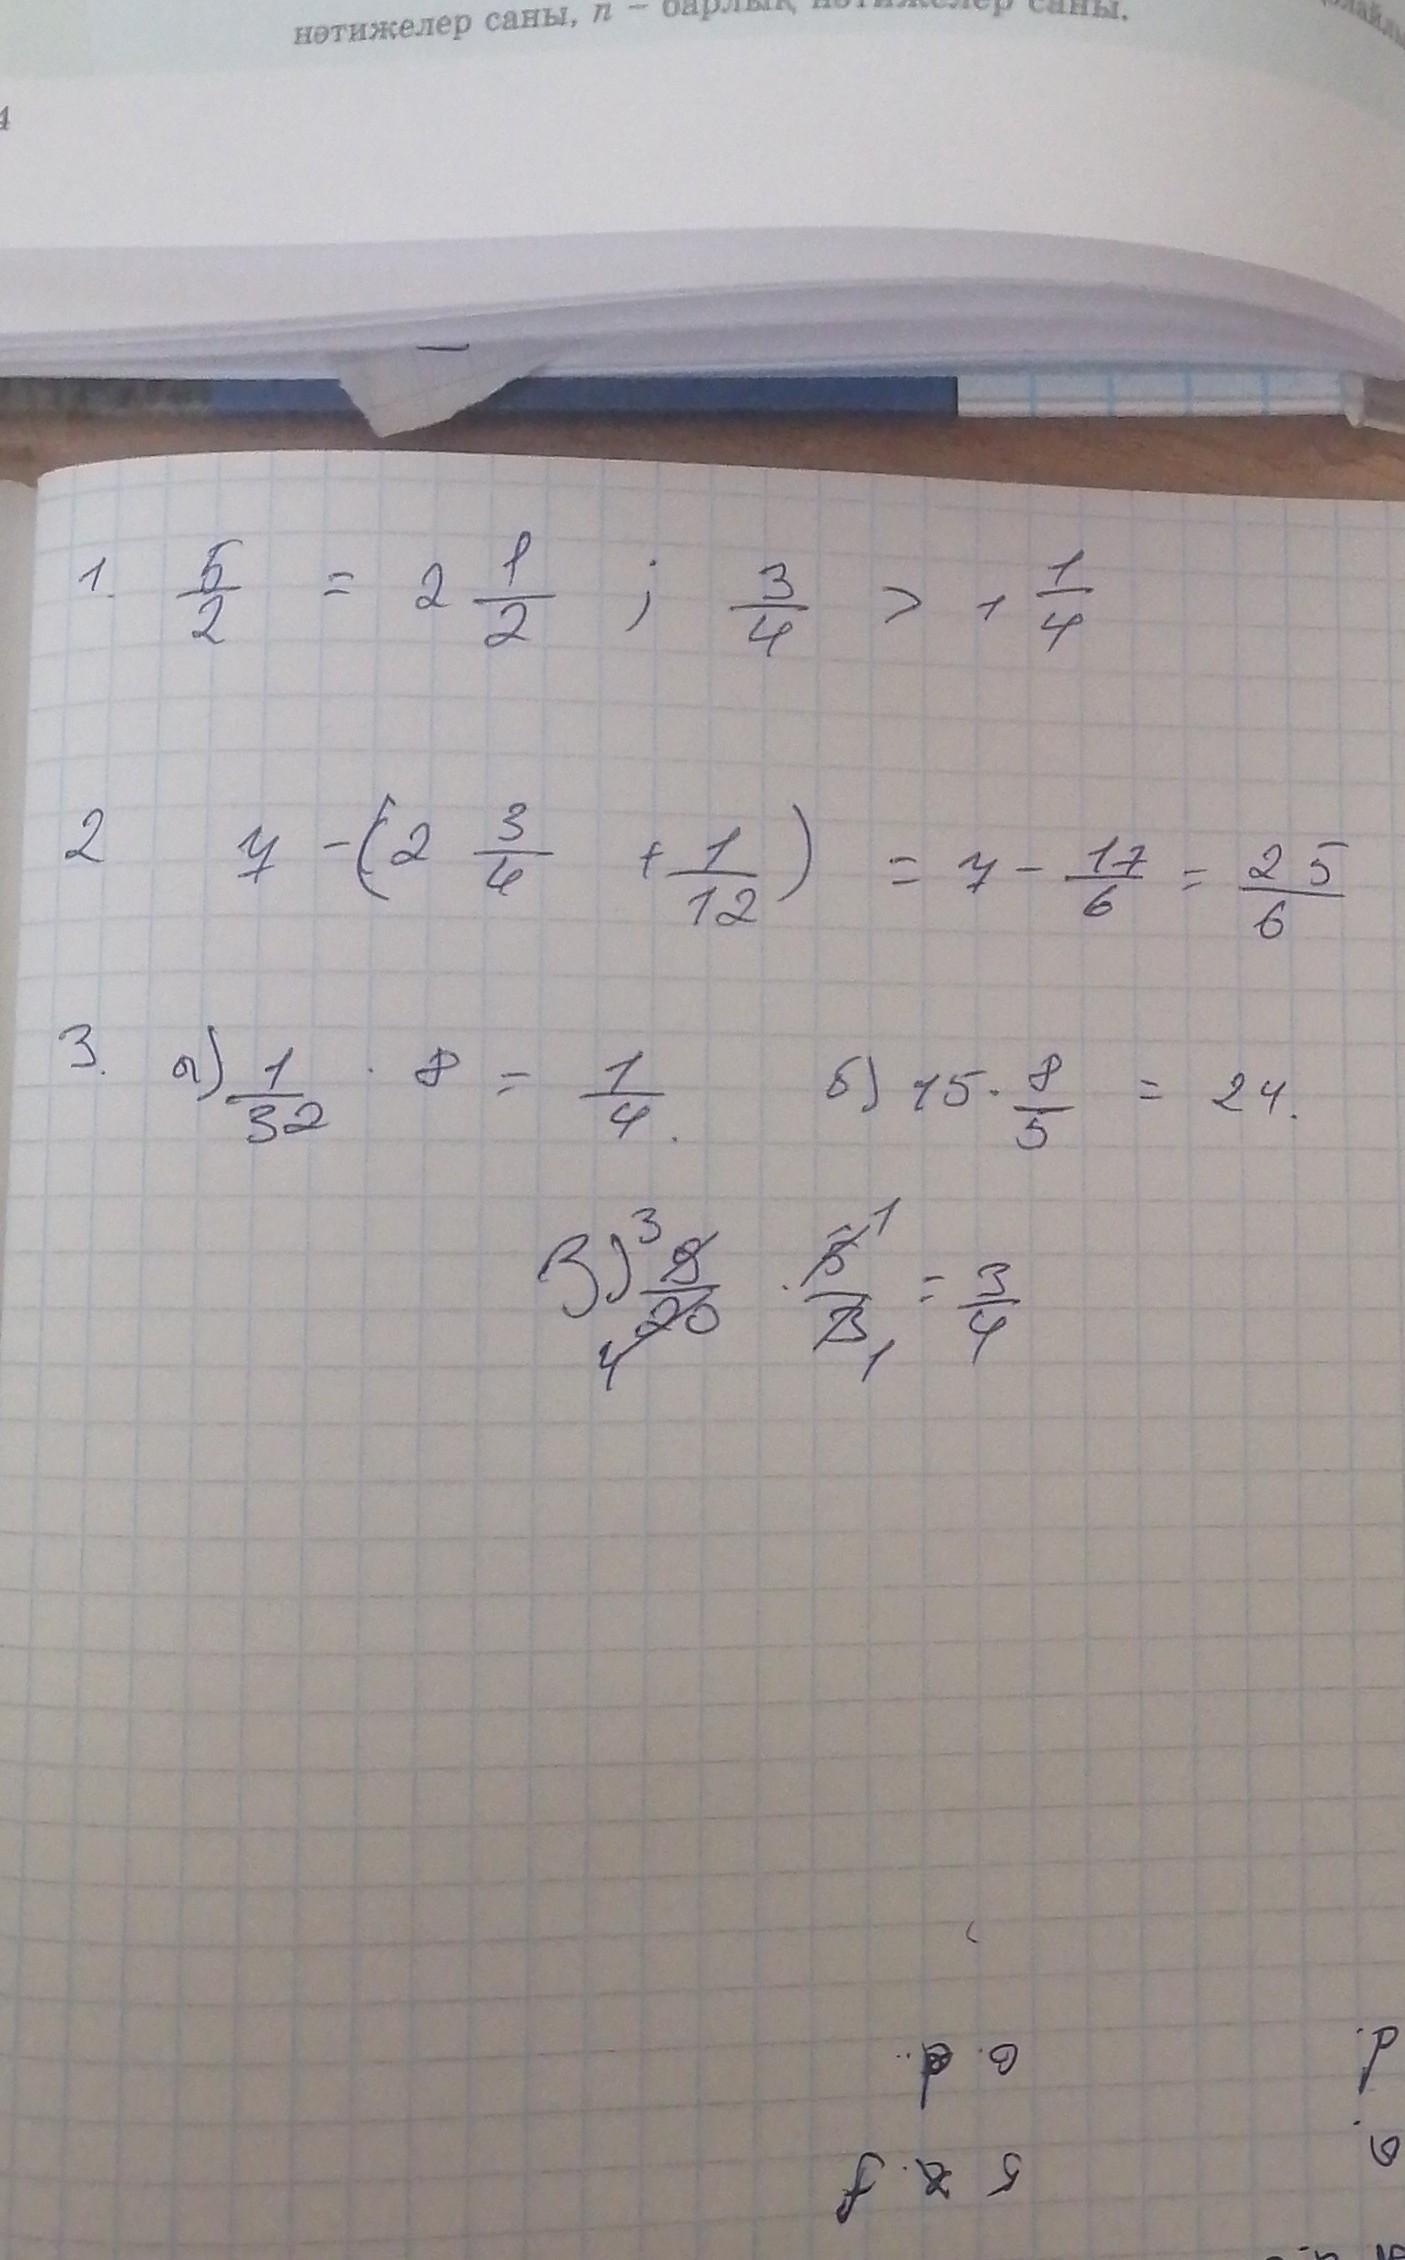 нәтижелер саны, n – барлық нәтижелер саны.
4
1. 5/2 = 2 1/2 ; 3/4 > 1 1/4
2 7 - (2 3/4 + 1/12) = 7 - 17/6 = 25/6
3. а) 1/32 · 8 = 1/4. б) 15 · 8/5 = 24.
в) 3 9/20 4 · 5/3 1 1 = 3/4